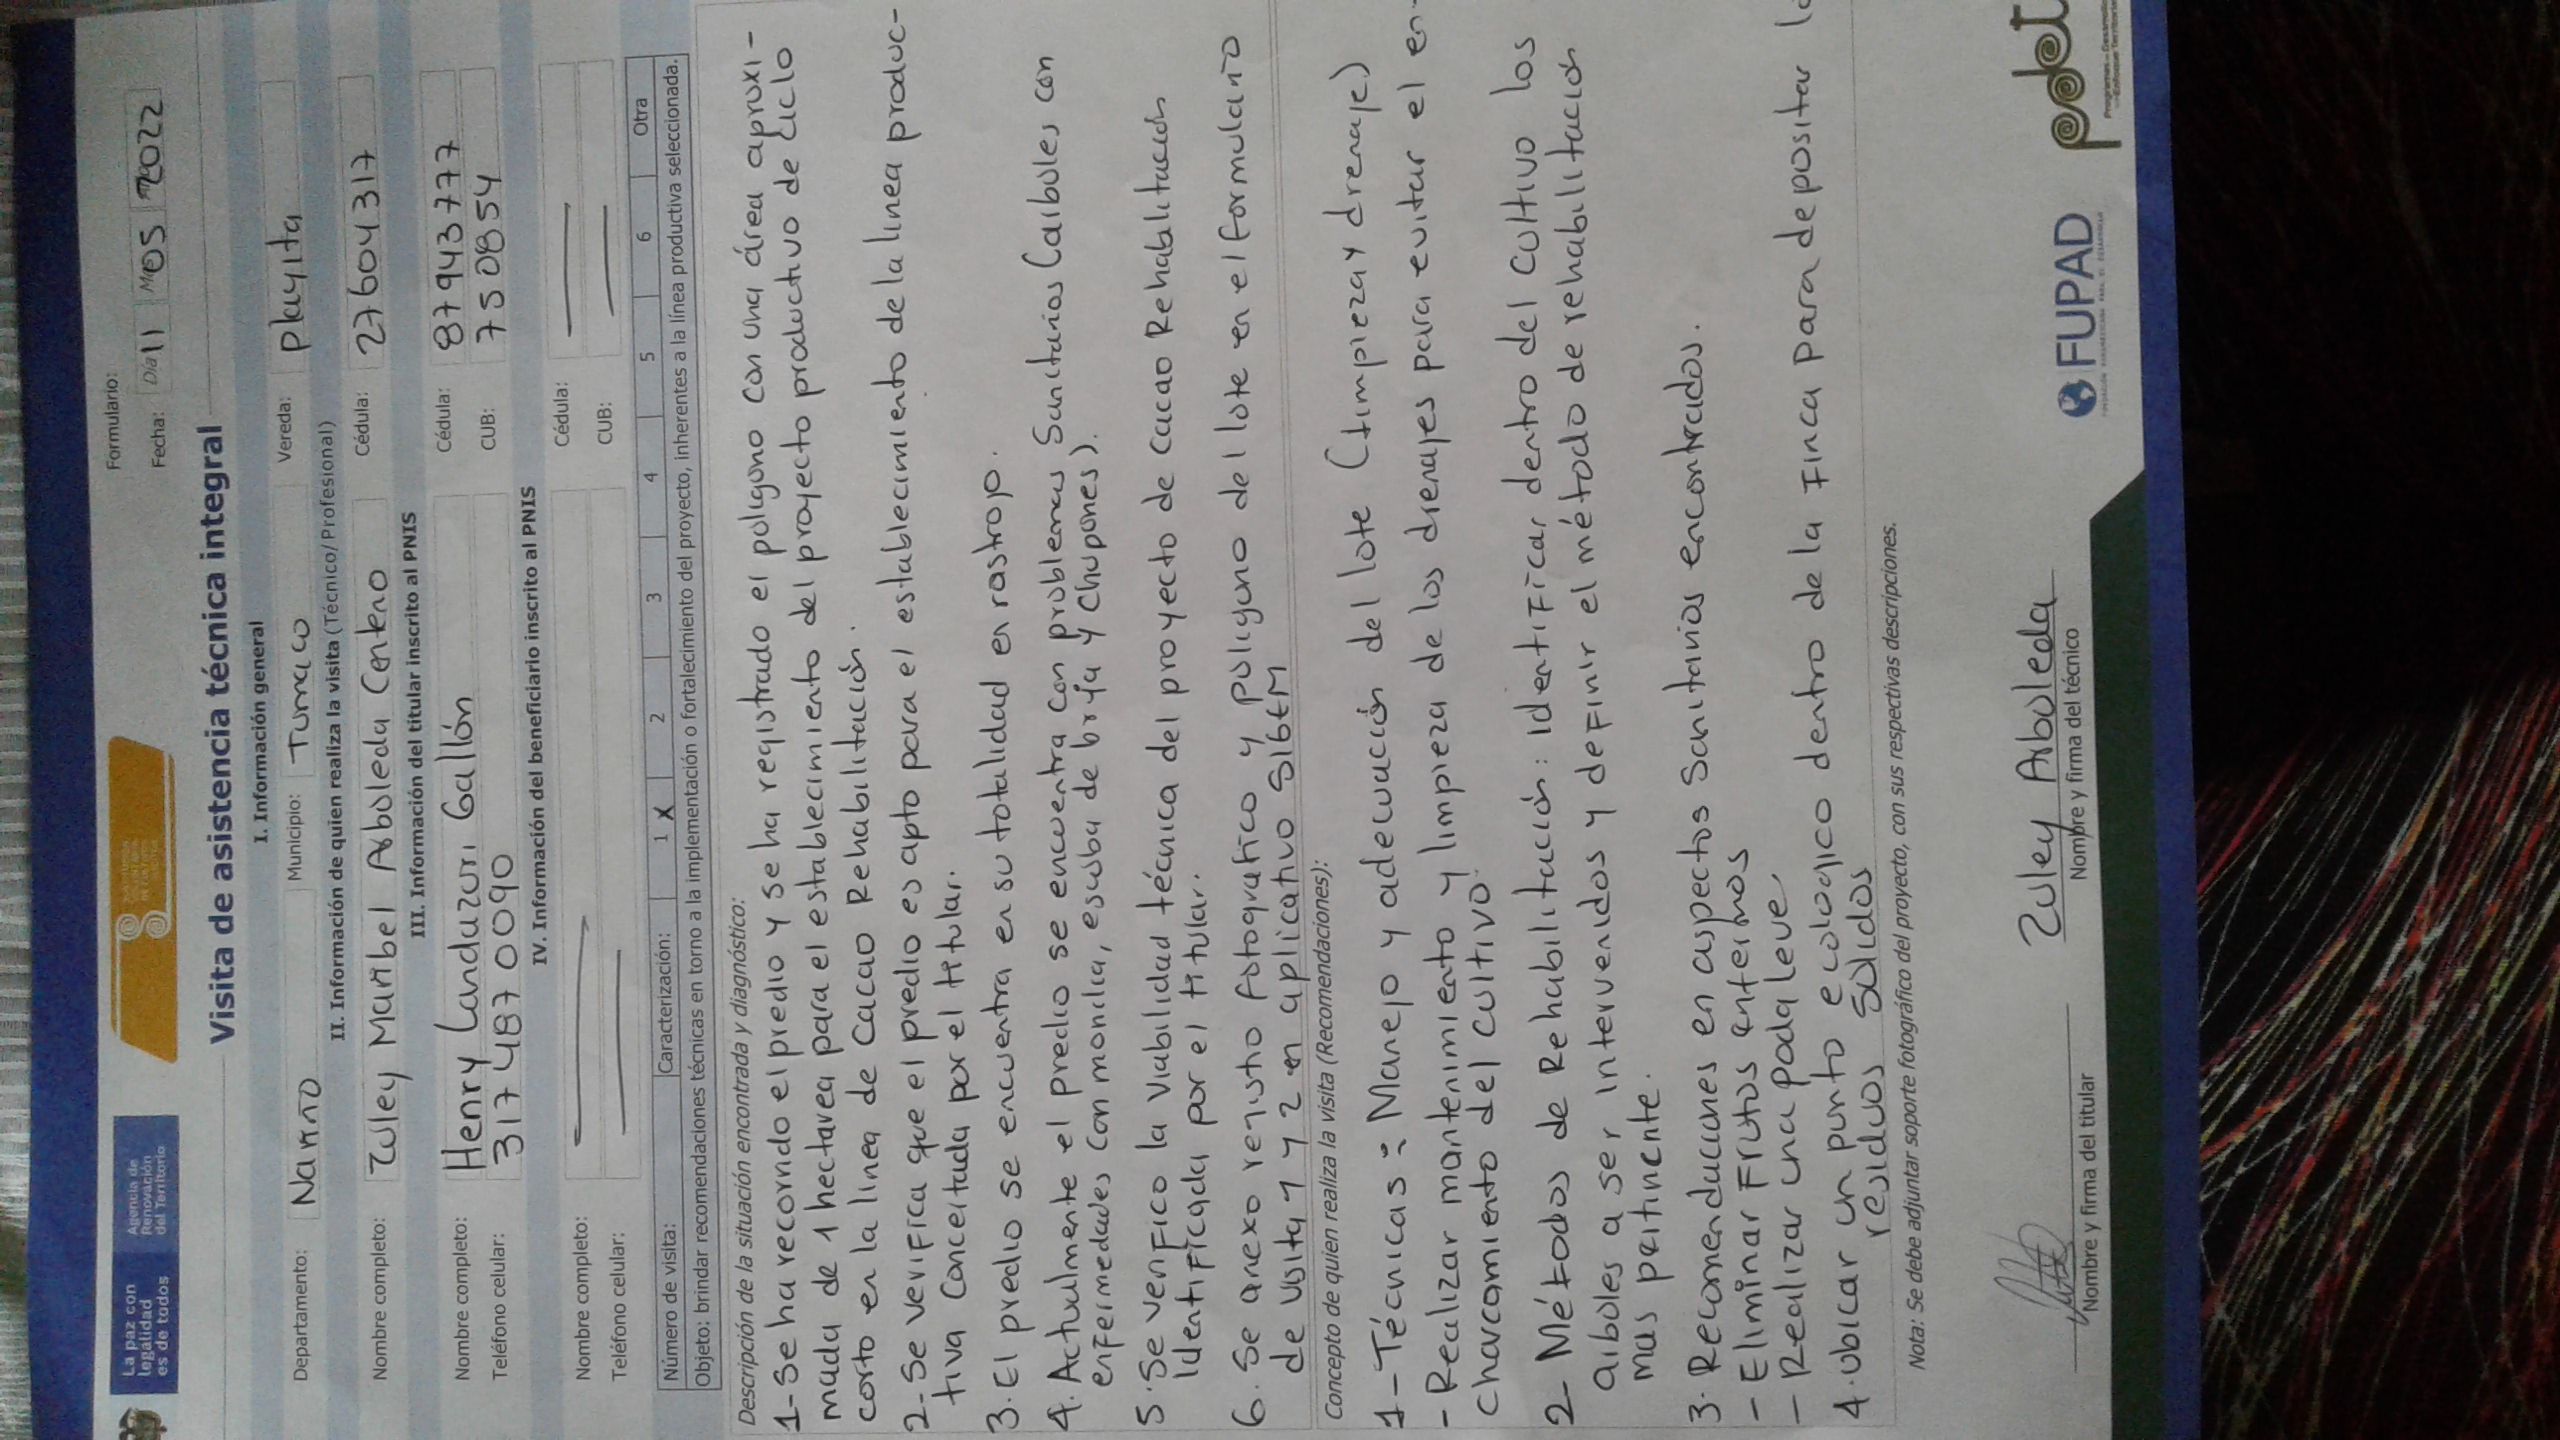 La paz con
legalidad
es de todos
Agencia de
Renovación
del Territorio
Formulario:
Fecha: Día 11 Mes 05 2022
Visita de asistencia técnica integral
I. Información general
Departamento: Nariño Municipio: Tumaco Vereda: playita
II. Información de quien realiza la visita (Técnico/Profesional)
Nombre completo: Zuley Maribel Arboleda Centeno Cédula: 27604317
III. Información del titular inscrito al PNIS
Nombre completo: Henry Landazuri Gallón Cédula: 87943777
Teléfono celular: 317 487 0090 CUB: 750854
IV. Información del beneficiario inscrito al PNIS
Nombre completo: Cédula:
Teléfono celular: CUB:
Número de visita: Caracterización: 1 X 2 3 4 5 6 Otra
Objeto: brindar recomendaciones técnicas en torno a la implementación o fortalecimiento del proyecto, inherentes a la línea productiva seleccionada.
Descripción de la situación encontrada y diagnóstico:
1- Se ha recorrido el predio y se ha registrado el poligono con una área aproxi-
mada de 1 hectarea para el establecimiento del proyecto productivo de ciclo
corto en la linea de Cacao Rehabilitación.
2- Se verifica que el predio es apto para el establecimiento de la linea produc-
tiva Concertada por el titular.
3. El predio se encuentra en su totalidad en rastrojo.
4. Actualmente el predio se encuentra con problemas Sanitarios (arboles con
enfermedades con monilia, escoba de bruja y Chupones).
5. Se verifico la Viabilidad técnica del proyecto de Cacao Rehabilitación
Identificada por el titular.
6. Se anexo registro fotografico y poligono del lote en el formulario
de visita 1 y 2 en aplicativo SIGEM
Concepto de quien realiza la visita (Recomendaciones):
1- Técnicas: Manejo y adecuación del lote (limpieza y drenaje)
- Realizar mantenimiento y limpieza de los drenajes para evitar el en-
charcamiento del cultivo.
2- Métodos de Rehabilitación: Identificar dentro del cultivo los
arboles a ser intervenidos y definir el método de rehabilitación
mas pertinente.
3. Recomendaciones en aspectos Sanitarios encontrados.
- Eliminar Frutos enfermos
- Realizar una poda leve.
4. ubicar un punto ecologico dentro de la Finca para depositar lo
residuos solidos
Nota: Se debe adjuntar soporte fotográfico del proyecto, con sus respectivas descripciones.
Zuley Arboleda
Nombre y firma del titular
Nombre y firma del técnico
FUPAD
pdet